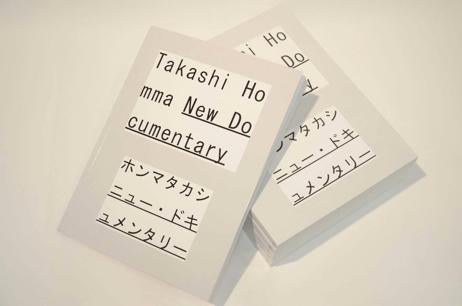 Takashi Ho
mma New Do
cumentary
ホンマタカシ
ニュー・ドキ
ュメンタリー
Ho
Do
y
ンマタカシ
ニュー・ドキ
ュメンタリー